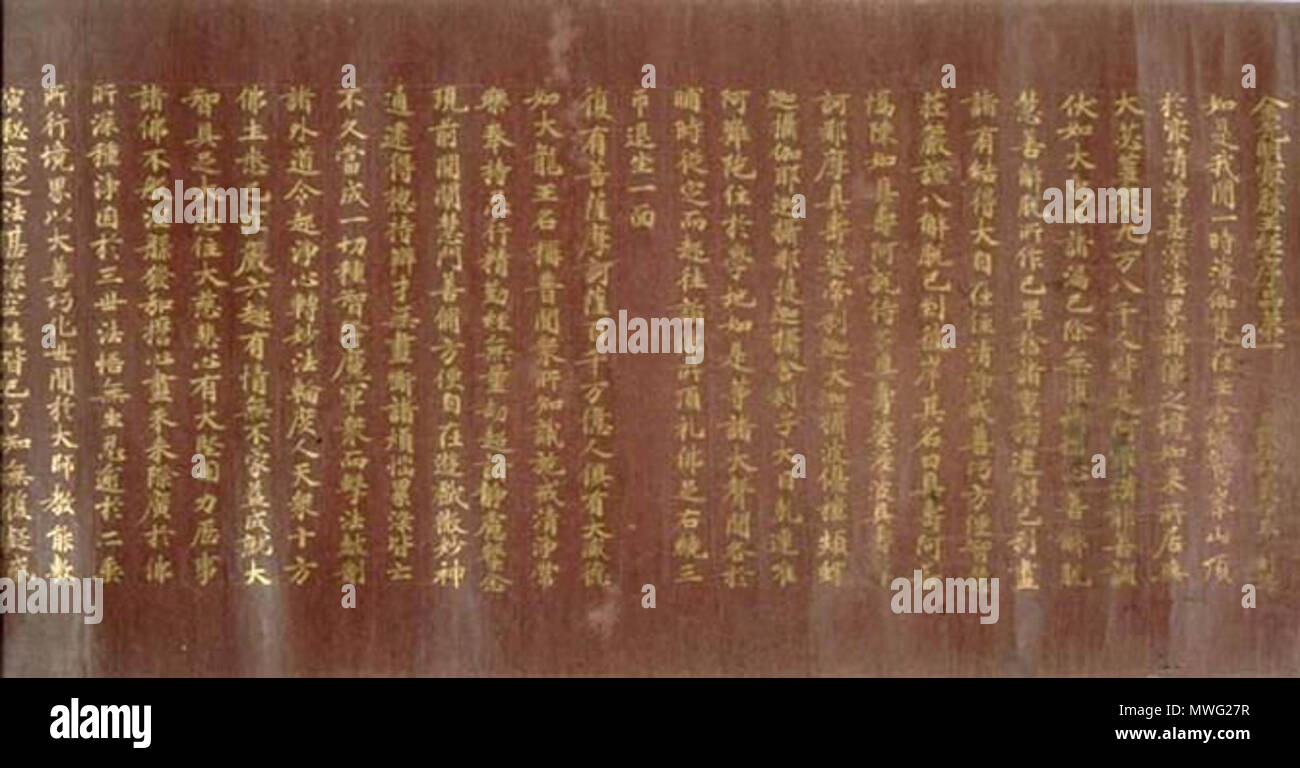 金光明最勝王經序品第一
如是我聞一時薄伽梵在王舍城鷲峯山頂
於最清淨甚深法界諸佛之境如來所居與
大苾芻眾九万八千人皆是阿羅漢能善調
伏如大象王諸漏已除無復煩惱心善解脫
慧善解脫所作已畢捨諸重擔逮得己利盡
諸有結得大自在住清淨戒善巧方便智慧
莊嚴證八解脫已到彼岸其名曰具壽阿若
憍陳如具壽阿說侍多具壽婆濕波具壽摩
訶那摩具壽婆帝利迦大迦攝波優樓頻螺
迦攝伽耶迦攝那提迦攝舍利子大目乾連唯
阿難陀住於學地如是等諸大聲聞各於
晡時從定而起往詣佛所頂礼佛足右繞三
帀退坐一面
復有菩薩摩訶薩百千万億人俱有大威德
如大龍王名稱普聞眾所知識施戒清淨常
樂奉持忍行精勤經無量劫超諸靜慮繫念
現前開闡慧門善修方便自在遊戲微妙神
通逮得總持辯才無盡斷諸煩惱累染皆亡
不久當成一切種智降魔軍眾而擊法鼓制
諸外道令起淨心轉妙法輪度人天眾十方
佛土悉已莊嚴六趣有情無不蒙益成就大
智具足大忍住大慈悲心有大堅固力歷事
諸佛不般涅槃發弘誓心盡未來際廣於佛
所深種淨因於三世法悟無生忍逾於二乘
所行境界以大善巧化世間於大師教能敷
演祕密之法甚深空性皆已了知無復疑惑
alamy
Image ID: MWG27R
www.alamy.com